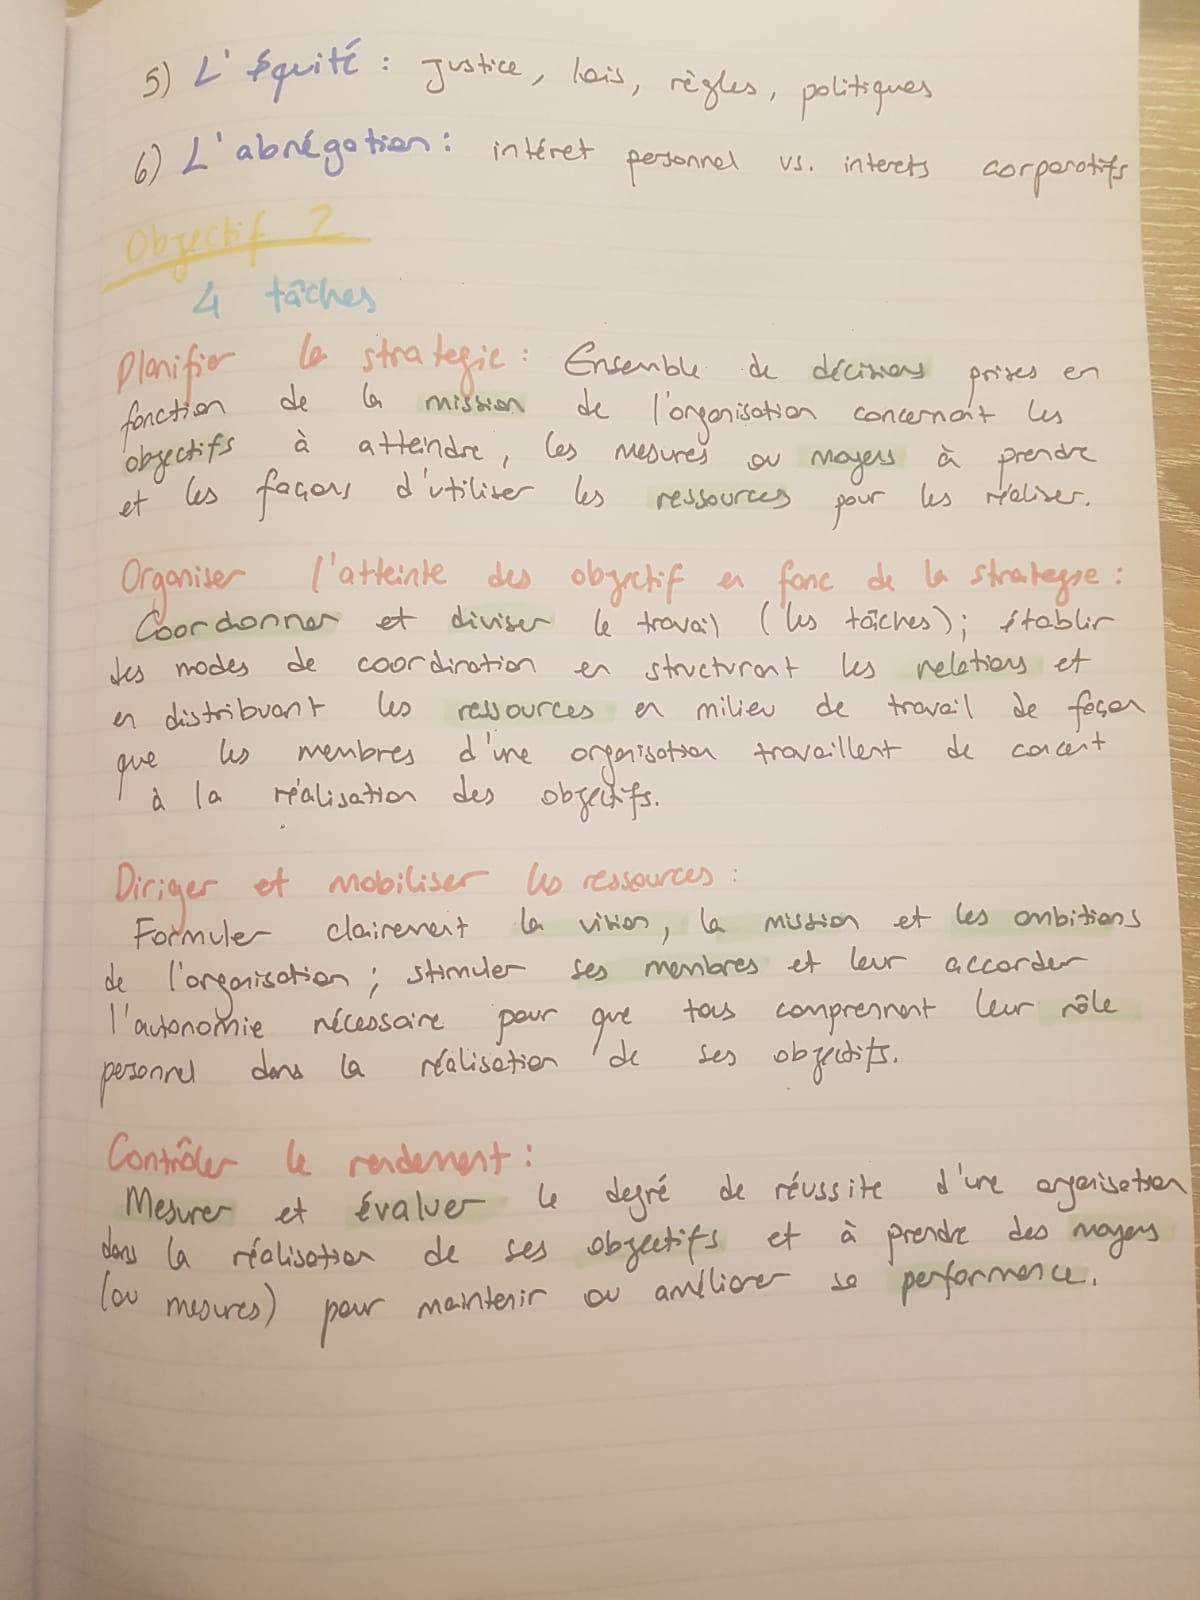 5) L'équité : Justice, lois, règles, politiques
6) L'abnégation : intéret personnel vs. interets corporatifs
Objectif 2
4 tâches
Planifier la strategie : Ensemble de décisions prises en
fonction de la mission de l'organisation concernant les
objectifs à atteindre, les mesures ou moyens à prendre
et les façons d'utiliser les ressources pour les réaliser.
Organiser l'atteinte des objectif en fonc de la strategie :
Coordonner et diviser le travail (les tâches); établir
des modes de coordination en structurant les relations et
en distribuant les ressources en milieu de travail de façon
que les membres d'une organisation travaillent de concert
à la réalisation des objectifs.
Diriger et mobiliser les ressources :
Formuler clairement la vision, la mission et les ambitions
de l'organisation ; stimuler ses membres et leur accorder
l'autonomie nécessaire pour que tous comprennent leur rôle
personnel dans la réalisation de ses objectifs.
Contrôler le rendement :
Mesurer et évaluer le degré de réussite d'une organisation
dans la réalisation de ses objectifs et à prendre des moyens
(ou mesures) pour maintenir ou améliorer sa performance.